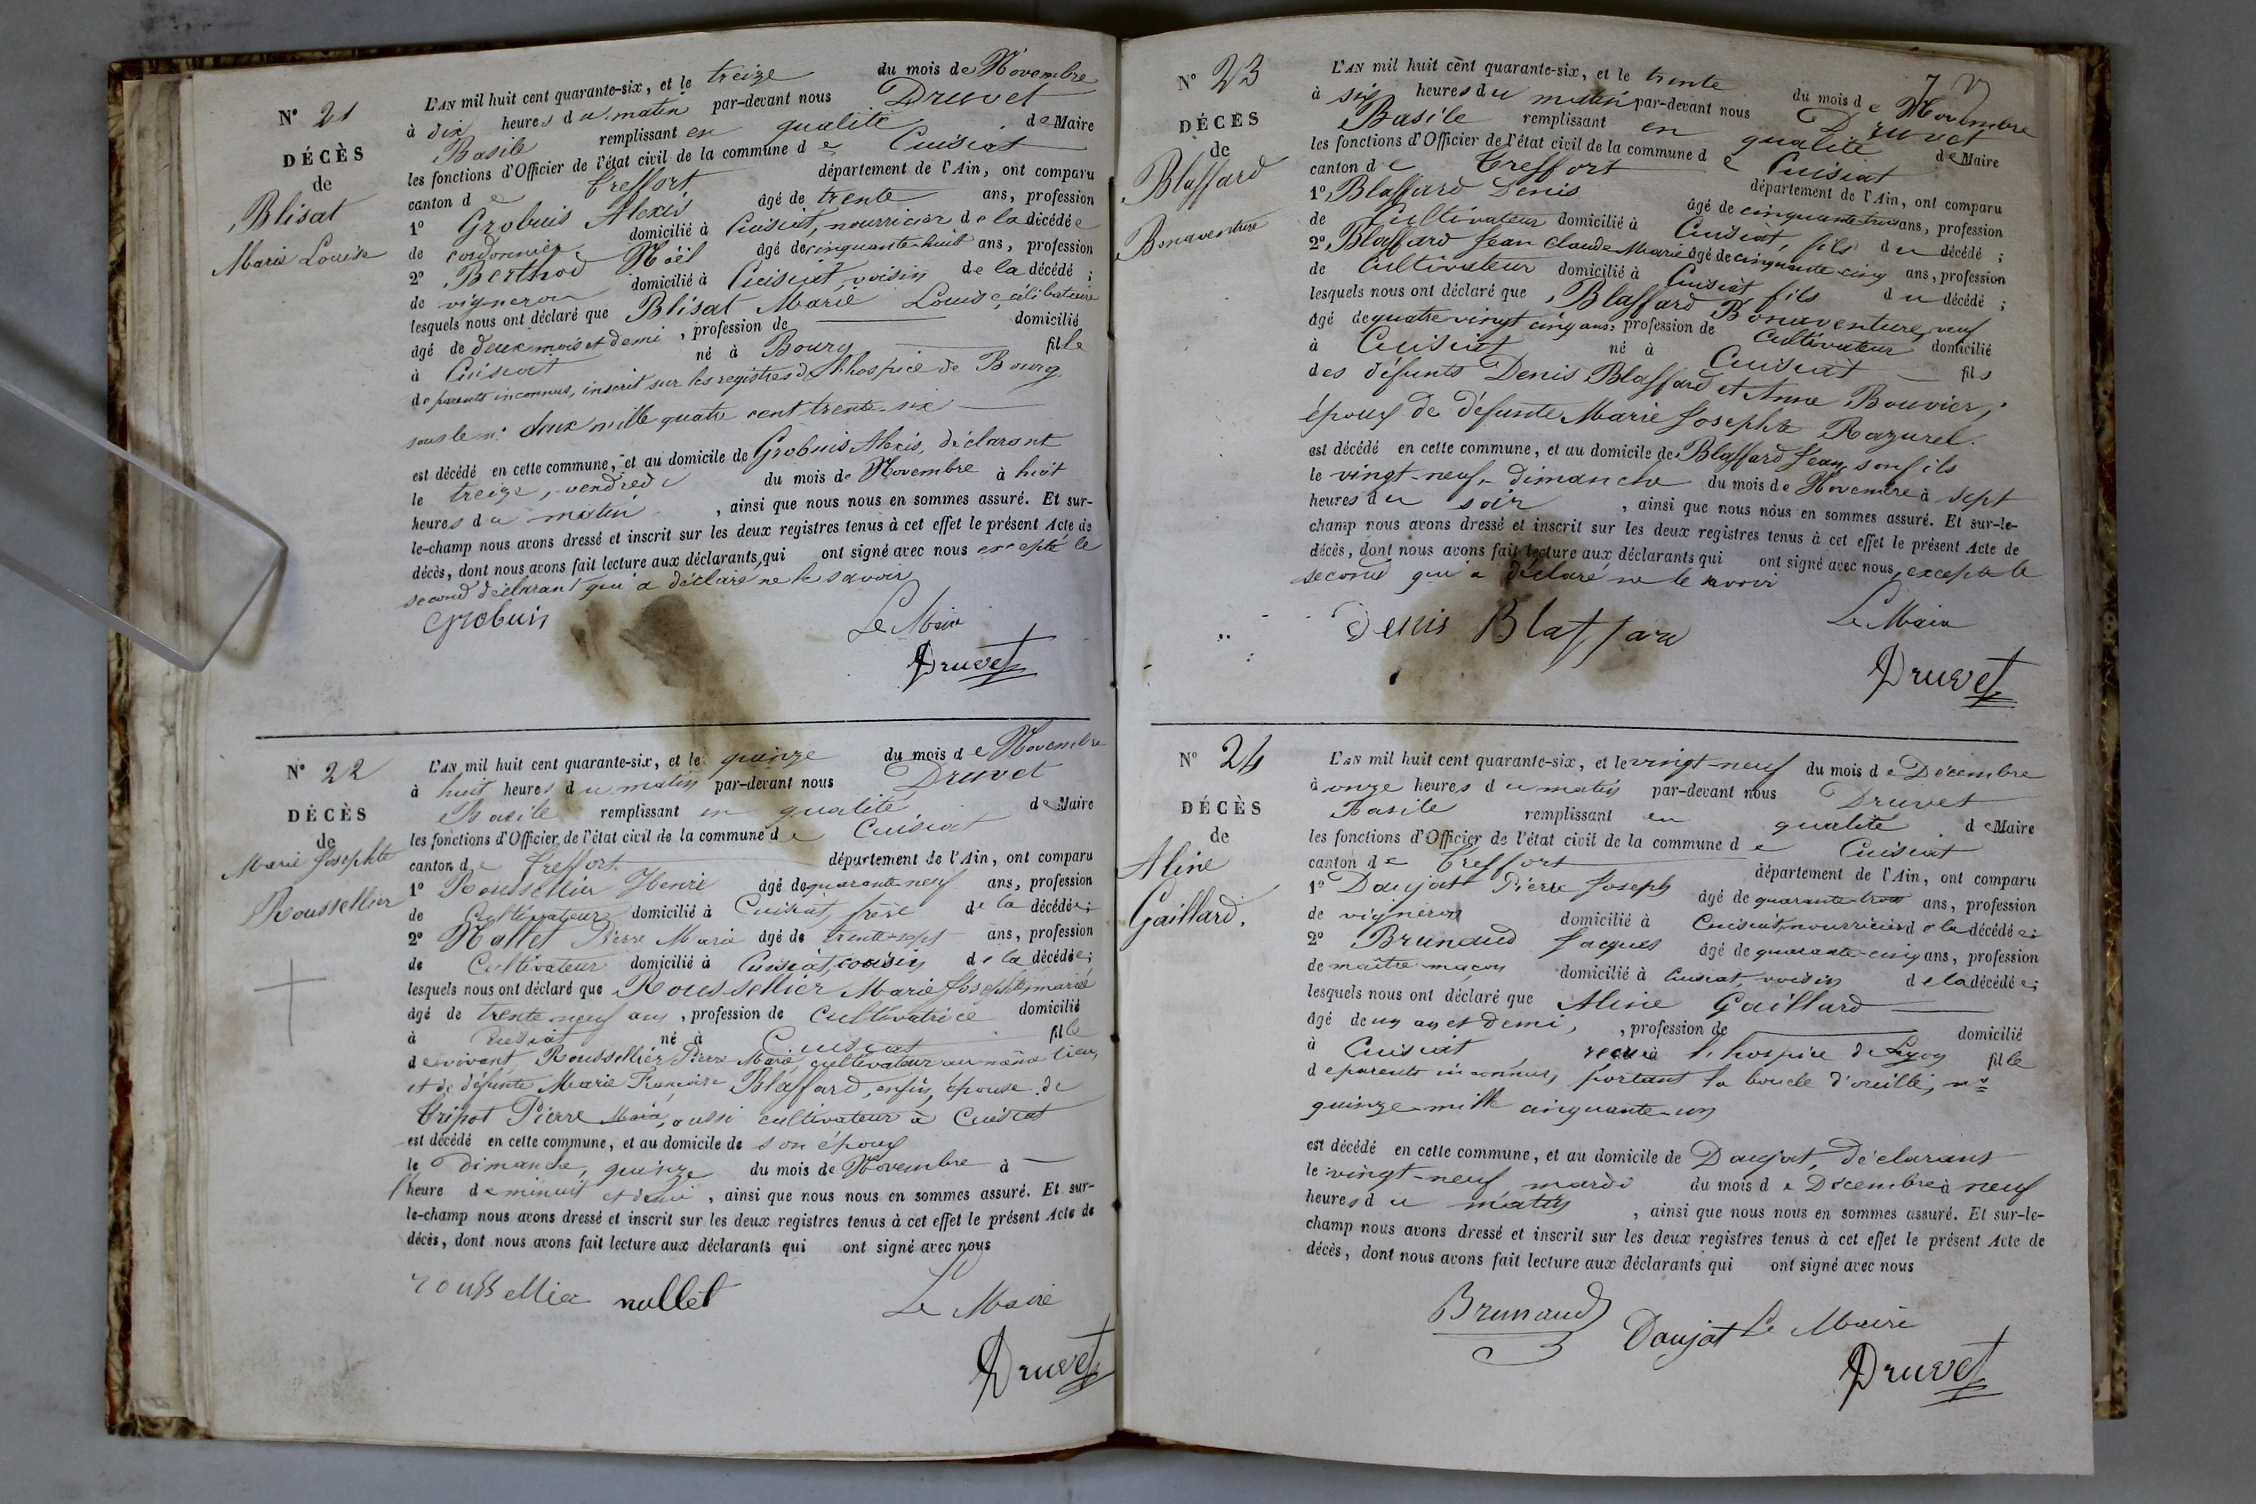 N° 21
DÉCÈS
de
Blisat
Marie Louise
L'AN mil huit cent quarante-six, et le treize du mois de Novembre
à dix heures du matin par-devant nous Druvet
Basile remplissant en qualité de Maire
les fonctions d'Officier de l'état civil de la commune de Cuisiat
canton de Treffort département de l'Ain, ont comparu
1° Grobuis Alexis âgé de trente ans, profession
de cordonnier domicilié à Cuisiat, nourricier de la décédée
2° Berthod Noël âgé de cinquante-huit ans, profession
de vigneron domicilié à Cuisiat, voisin de la décédé ;
lesquels nous ont déclaré que Blisat Marie Louise, célibataire
âgé de deux mois et demi, profession de domicilié
à Cuisiat né à Bourg fille
de parents inconnus, inscrit sur les registres de l'hospice de Bourg
sous le n° deux mille quatre cent trente-six
est décédé en cette commune, et au domicile de Grobuis Alexis, déclarant
le treize, vendredi du mois de Novembre à huit
heures du matin, ainsi que nous nous en sommes assuré. Et sur-
le-champ nous avons dressé et inscrit sur les deux registres tenus à cet effet le présent Acte de
décès, dont nous avons fait lecture aux déclarants, qui ont signé avec nous excepté le
second déclarant qui a déclaré ne le savoir
Grobuis Le Maire
Druvet
N° 22
DÉCÈS
de
Marie Josephte
Roussellier
L'AN mil huit cent quarante-six, et le quinze du mois de Novembre
à huit heures du matin par-devant nous Druvet
Basile remplissant en qualité de Maire
les fonctions d'Officier de l'état civil de la commune de Cuisiat
canton de Treffort département de l'Ain, ont comparu
1° Roussellier Henri âgé de quarante-neuf ans, profession
de Cultivateur domicilié à Cuisiat, frère de la décédée ;
2° Nallet Pierre Marie âgé de trente-sept ans, profession
de Cultivateur domicilié à Cuisiat, cousin de la décédée ;
lesquels nous ont déclaré que Roussellier Marie Josephte, mariée
âgé de trente neuf ans, profession de Cultivatrice domicilié
à Cuisiat né à Cuisiat fille
de vivant Roussellier Pierre Marie, cultivateur au même lieu,
et de défunte Marie Françoise Blaffard, enfin, épouse de
Tripot Pierre Marie, aussi cultivateur à Cuisiat
est décédé en cette commune, et au domicile de son époux
le dimanche, quinze du mois de Novembre à
l'heure de minuit et demie, ainsi que nous nous en sommes assuré. Et sur-
le-champ nous avons dressé et inscrit sur les deux registres tenus à cet effet le présent Acte de
décès, dont nous avons fait lecture aux déclarants qui ont signé avec nous
roussellier nallet Le Maire
Druvet
N° 23
DÉCÈS
de
Blaffard
Bonaventure
L'AN mil huit cent quarante-six, et le trente du mois de Novembre
à six heures du matin par-devant nous Druvet
Basile remplissant en qualité de Maire
les fonctions d'Officier de l'état civil de la commune de Cuisiat
canton de Treffort département de l'Ain, ont comparu
1° Blaffard Denis âgé de cinquante trois ans, profession
de Cultivateur domicilié à Cuisiat, fils du décédé ;
2° Blaffard Jean Claude Marie âgé de cinquante-cinq ans, profession
de Cultivateur domicilié à Cuisiat, fils du décédé ;
lesquels nous ont déclaré que Blaffard Bonaventure, veuf
âgé de quatre vingt cinq ans, profession de Cultivateur domicilié
à Cuisiat né à Cuisiat fils
des défunts Denis Blaffard et Anne Bouvier,
époux de défunte Marie Josephte Razurel.
est décédé en cette commune, et au domicile de Blaffard Jean, son fils
le vingt-neuf, dimanche du mois de Novembre à sept
heures du soir, ainsi que nous nous en sommes assuré. Et sur-le-
champ nous avons dressé et inscrit sur les deux registres tenus à cet effet le présent Acte de
décès, dont nous avons fait lecture aux déclarants qui ont signé avec nous, excepté le
second qui a déclaré ne le savoir
Denis Blaffard Le Maire
Druvet
N° 24
DÉCÈS
de
Aline
Gaillard.
L'AN mil huit cent quarante-six, et le vingt-neuf du mois de Décembre
à onze heures du matin par-devant nous Druvet
Basile remplissant en qualité de Maire
les fonctions d'Officier de l'état civil de la commune de Cuisiat
canton de Treffort département de l'Ain, ont comparu
1° Daujat Pierre Joseph âgé de quarante-trois ans, profession
de vigneron domicilié à Cuisiat, nourricier de la décédée ;
2° Brunaud Jacques âgé de quarante-cinq ans, profession
de maître maçon domicilié à Cuisiat, voisin de la décédée ;
lesquels nous ont déclaré que Aline Gaillard
âgé de un an et demi, profession de domicilié
à Cuisiat reçue à l'hospice de Lyon fille
de parents inconnus, portant la boucle d'oreille, n°
quinze mille cinquante-un
est décédé en cette commune, et au domicile de Daujat, déclarant
le vingt-neuf mardi du mois de Décembre à neuf
heures du matin, ainsi que nous nous en sommes assuré. Et sur-le-
champ nous avons dressé et inscrit sur les deux registres tenus à cet effet le présent Acte de
décès, dont nous avons fait lecture aux déclarants qui ont signé avec nous
Brunaud Daujat Le Maire
Druvet